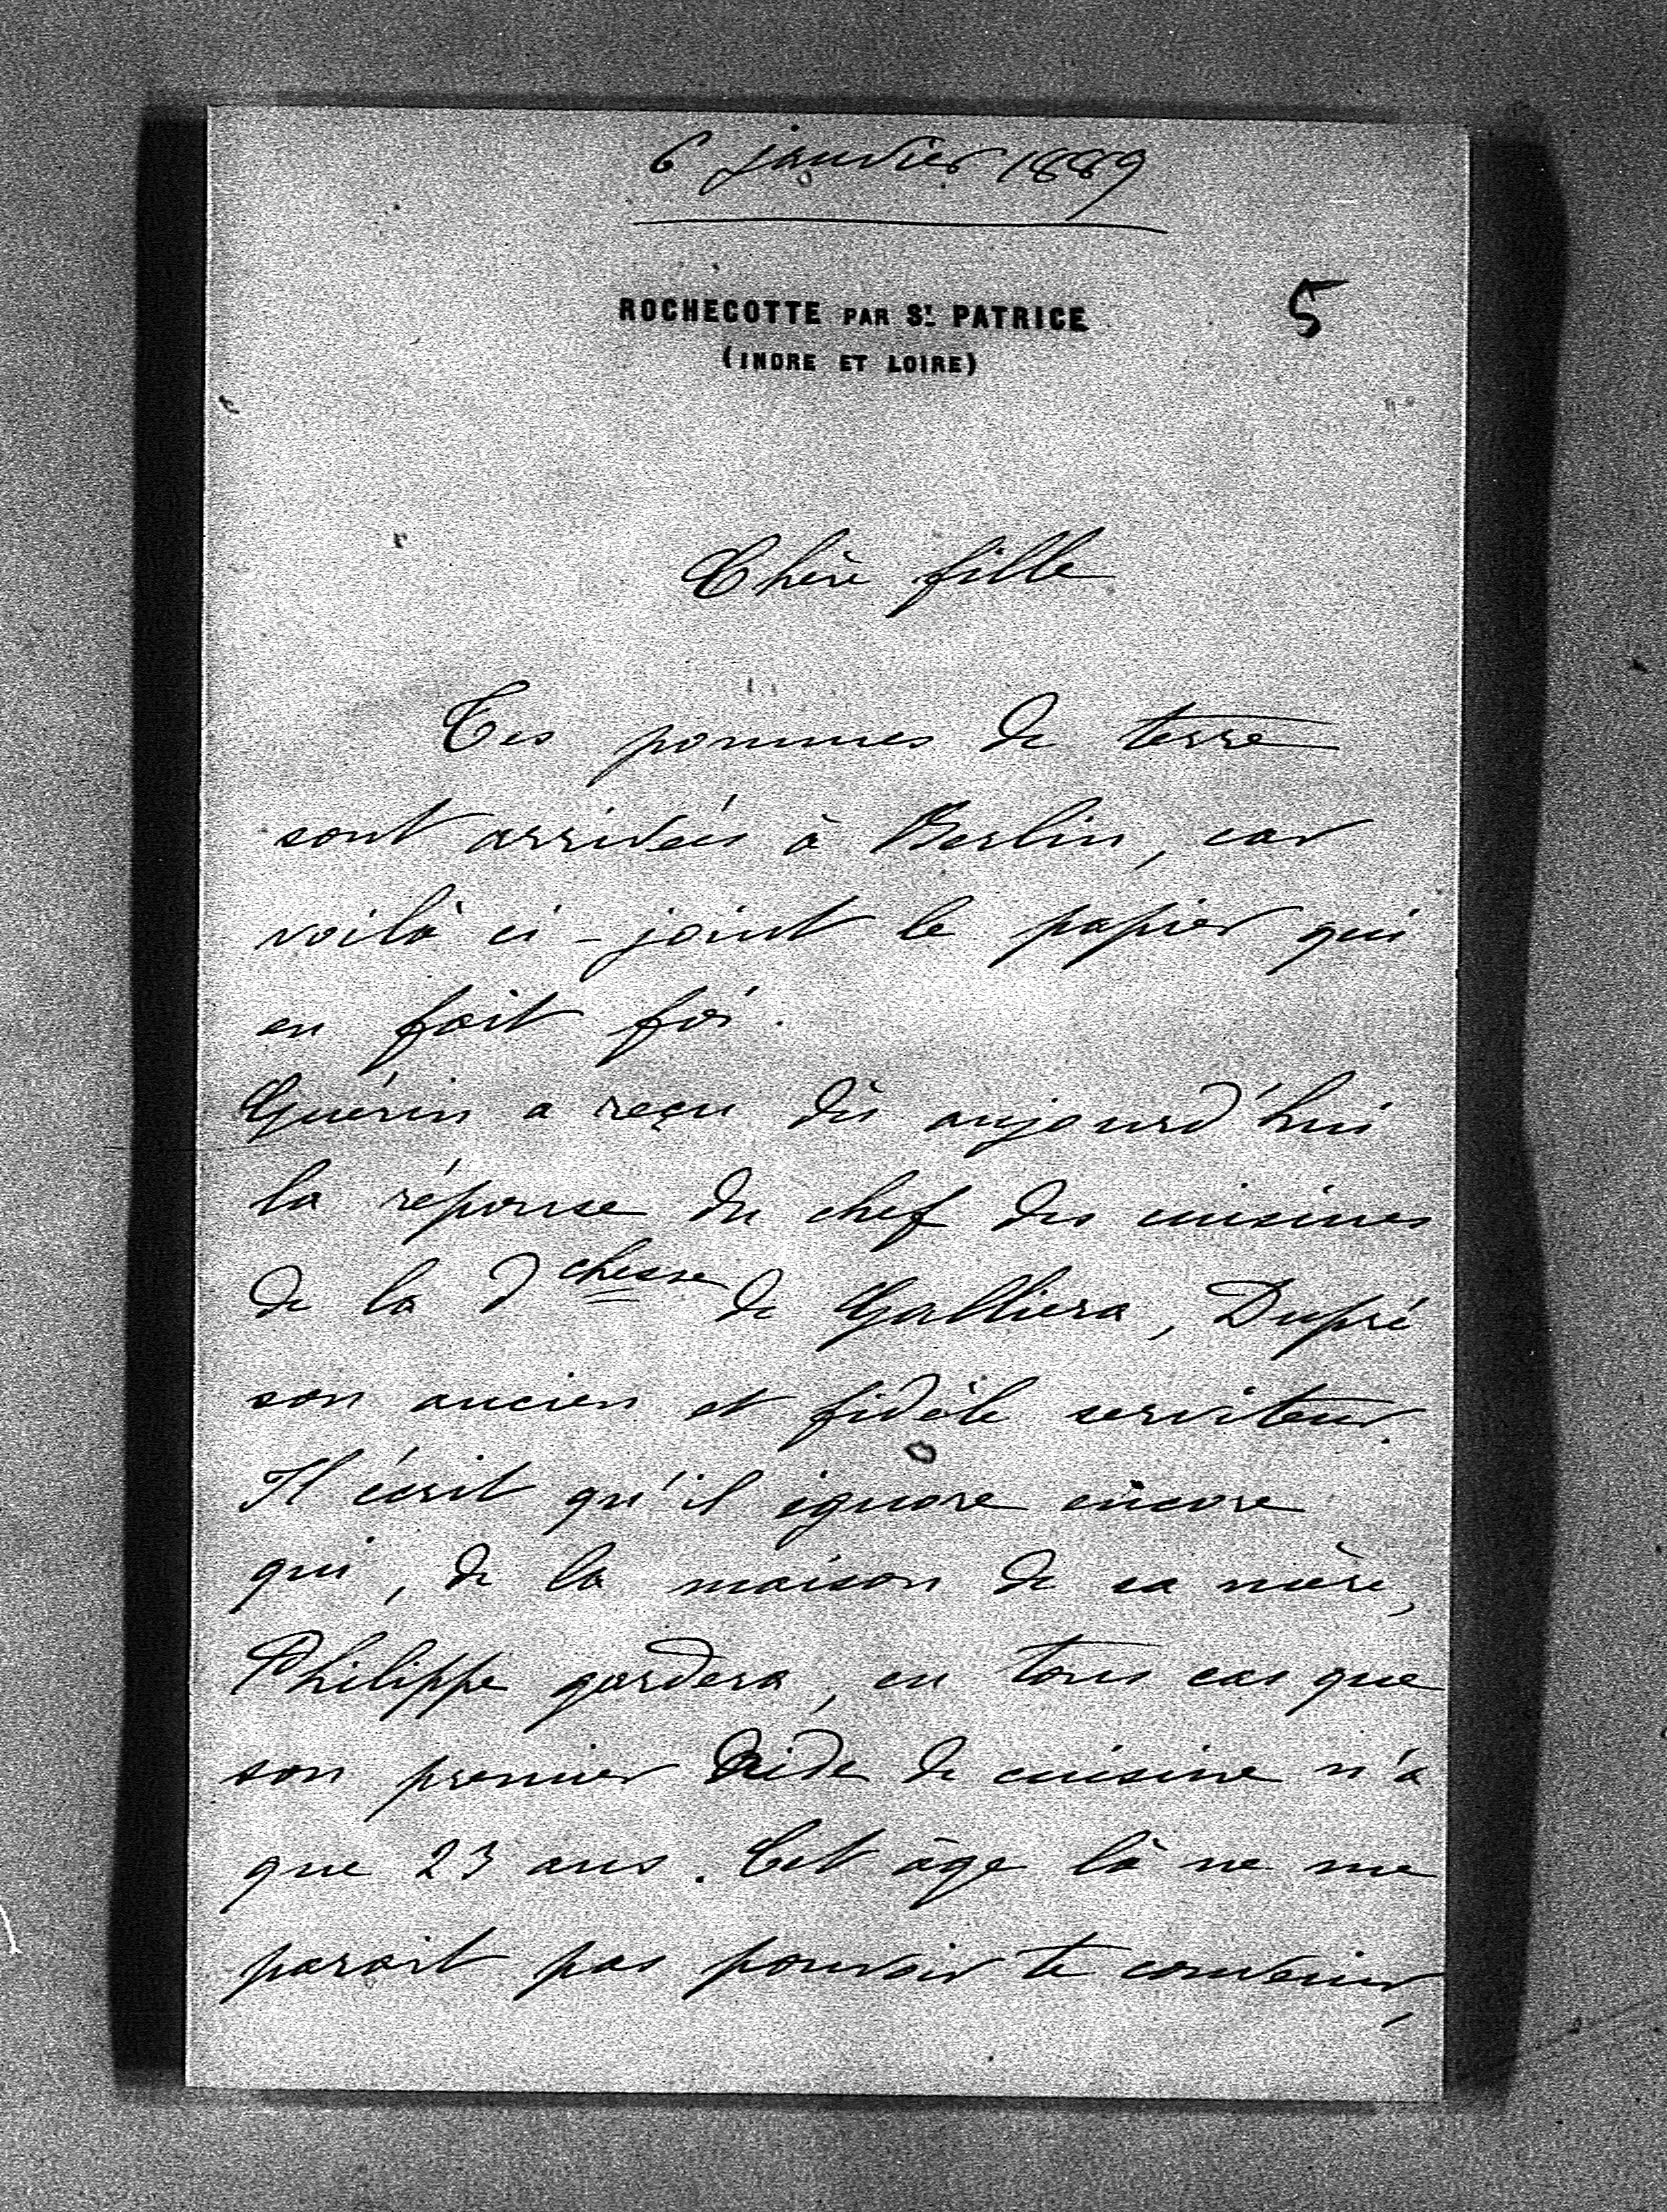 6 janvier 1889
ROCHECOTTE PAR St. PATRICE
(INDRE ET LOIRE)
5
Chère fille
Tes pommes de terre
sont arrivées à Berlin, car
voilà ci-joint le papier qui
en fait foi.
Guérin a reçu dès aujourd'hui
la réponse du chef des cuisines
de la Dchesse de Galliera, Dupré
son ancien et fidèle serviteur.
Il écrit qu'il ignore encore
qui, de la maison de sa mère,
Philippe gardera, en tous cas que
son premier aide de cuisine n'a
que 23 ans. Cet âge là ne me
parait pas pouvoir te convenir,